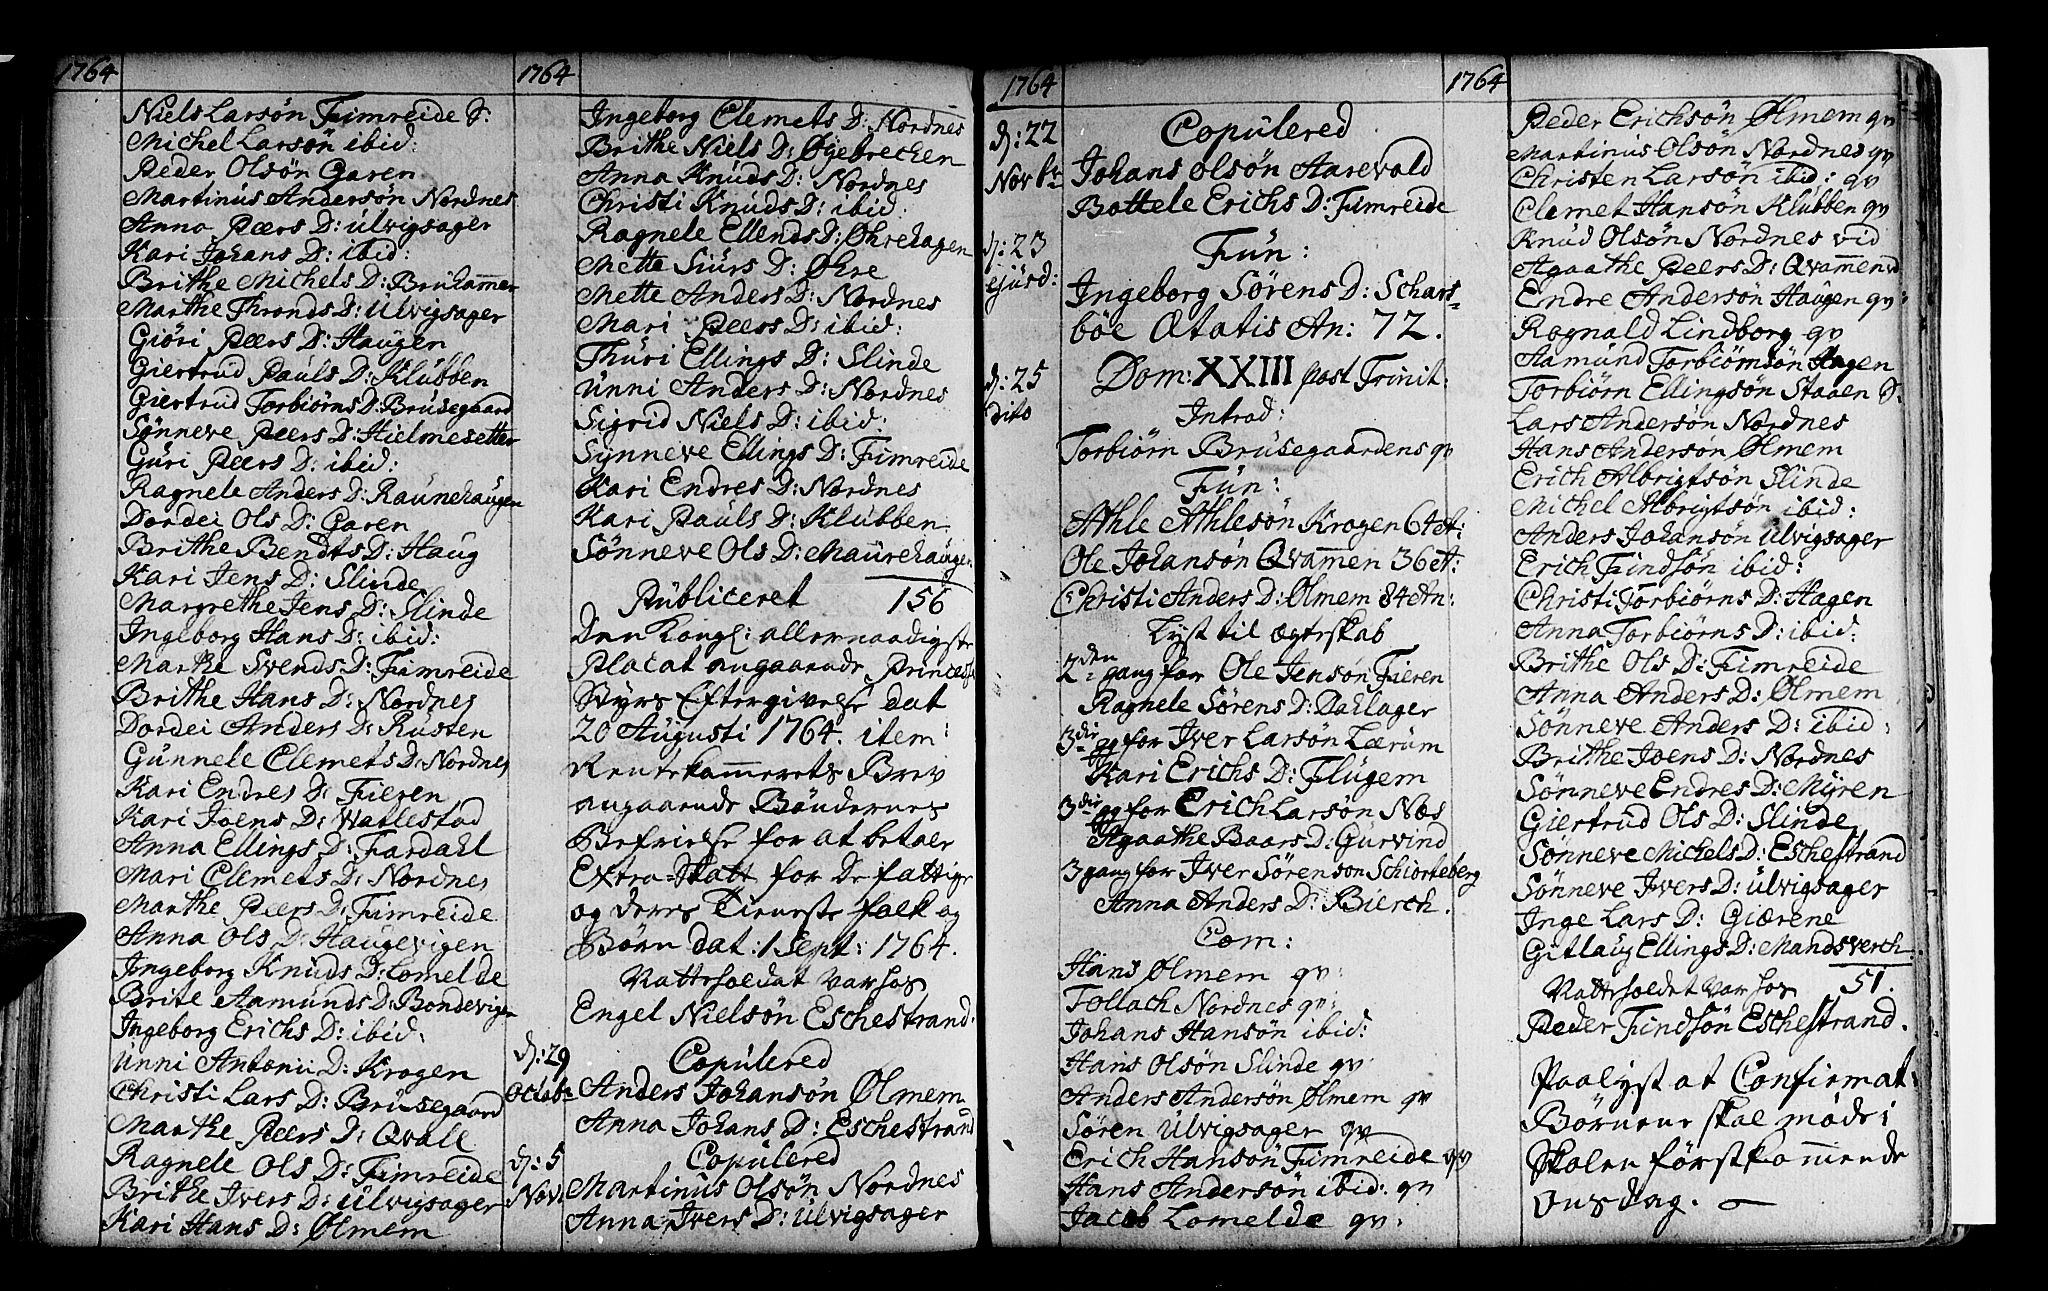 1764
Niels Larsøn Fimreide S:
Michel Larsøn ibid:
Peder Olsøn Garen
Martinus Andersøn Nordnes
Anna Peers D: Ulvigsager
Kari Johans D: ibid:
Brithe Michels D: Bruhammer
Marthe Thronds D: Ulvigsager
Giøri Peers D: Haugen
Giertrud Pauls D: Klubben
Giertrud Torbiørns D: Brusegaard
Sønneve Peers D: Hielmesetter
Guri Peers D: ibid:
Ragnele Anders D: Raunehaugen
Dordei Ols D: Garen
Brithe Bendts D: Haug
Kari Jens D: Slinde
Margrethe Jens D: Slinde
Ingeborg Hans D: ibid:
Marthe Svends D: Fimreide
Brithe Hans D: Nordnes
Dordei Anders D: Rusten
Gunnele Clemets D: Nordnes
Kari Endres D: Fieren
Kari Joens D: Vallestad
Anna Ellings D: Fardahl
Mari Clemets D: Nordnes
Marthe Peers D: Fimreide
Anna Ols D: Haugevigen
Ingeborg Knuds D: Lomelde
Brite Aamunds D: Bondevigen
Ingeborg Erichs D: ibid:
Unni Antonii D: Krogen
Christi Lars D: Brusegaard
Marthe Peers D: Qvale
Ragnele Ols D: Fimreide
Brithe Ivers D: Ulvigsager
Kari Hans D: Ølmem
1764
Ingeborg Clemets D: Nordnes
Brithe Niels D: Øyebrechen
Anna Knuds D: Nordnes
Christi Knuds D: ibid:
Ragnele Ellends D: Øhrehagen
Mette Siurs D: Øhre
Mette Anders D: Nordnes
Mari Peers D: ibid:
Thuri Ellings D: Slinde
Unni Anders D: Nordnes
Sigrid Niels D: ibid:
Synneve Ellings D: Fimreide
Kari Endres D: Nordnes
Kari Pauls D: Klubben
Sønneve Ols D: Maurehaugen
Publiceret 156
Den Kongl: allernaadigste
Placat angaaende Princesse
Styrs Eftergivelse dat
20 Augusti 1764. item:
Rentekammerets Brev
angaaende Bøndernes
Befrielse for at betale
Extra-Skatt for De fattige
og deres Tieneste folk og
Børn dat: 1 Sept: 1764.
Natteholdet var hos
Engel Nielsøn Eschestrand.
d: 29
Octobr
Copulered
Anders Johansøn Ølmem
Anna Johans D: Eschestrand
d: 5
Nov:
Copulered
Martinus Olsøn Nordnes
Anna Ivers D: Ulvigsager
1764
d: 22
Novbr
Copulered
Johans Olsøn Aarevold
Bottele Erichs D: Fimreide
d: 23
ejusd:
Fun:
Ingeborg Sørens D: Schars-
bøe Ætatis An: 72.
d: 25
dito
Dom: XXIII post Trinit:
Introd:
Torbiørn Brusegaardens qv
Fun:
Athle Athlesøn Krogen 6 Æt:
Ole Johansøn Qvammen 36 Æt:
Christi Anders D: Ølmem 84 An:
Lyst til Ægteskab
2den gang for Ole Jensøn Fieren
Ragnele Sørens D: Dahlager
3die gg for Iver Larsøn Lærum
Kari Erichs D: Flugem
3die gg for Erich Larsøn Næs
Agaathe Baars D: Gurvind
3 gang for Iver Sørensøn Schiorteberg
Anna Anders D: Bierch.
Com:
Hans Ølmem qv:
Tollach Nordnes qv:
Johans Hansøn ibid:
Hans Olsøn Slinde qv
Anders Andersøn Ølmem qv
Søren Ulvigsager qv
Erich Hansøn Fimreide qv
Hans Andersøn ibid: qv
Jacob Lomelde qv:
1764
Peder Erichsøn Ølmem qv
Martinus Olsøn Nordnes qv
Christen Larsøn ibid: qv
Clemet Hansøn Klubben qv
Knud Olsøn Nordnes vid
Agaathe Peers D: Qvammen vid
Endre Andersøn Haugen qv:
Ragnald Lindborg qv
Aamund Torbiørnsøn Hagen
Torbiørn Ellingsøn Staaen S.
Lars Andersøn Nordnes
Hans Andersøn Ølmem
Erich Albrigtsøn Slinde
Michel Albrigtsøn ibid:
Anders Johansøn Ulvigsager
Erich Findsøn ibid:
Christi Torbiørns D: Hagen
Anna Torbiørns D: ibid:
Brithe Ols D: Fimreide
Anna Anders D: Ølmem
Sønneve Anders D: ibid:
Brithe Joens D: Nordnes
Sønneve Endres D: Myren
Giertrud Ols D: Slinde
Sønneve Michels D: Eschestrand
Sønneve Ivers D: Ulvigsager
Inge Lars D: Giærene
Gitlaug Ellings D: Mandsverch
Natteholdet var hos 51.
Peder Findsøn Eschestrand.
Paalyst at Confirmat:
Børnene skal møde i
Skolen førstkommende
Onsdag.